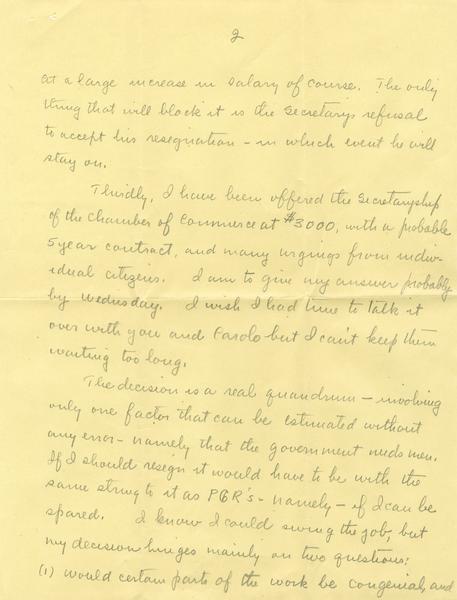 2
at a large increase in salary of course. The only
thing that will block it is the Secretary's refusal
to accept his resignation – in which event he will
stay on.
Thirdly, I have been offered the Secretaryship
of the Chamber of Commerce at $3000, with a probable
5 year contract, and many urgings from indiv-
idual citizens. I am to give my answer probably
by Wednesday. I wish I had time to talk it
over with you and Carolo but I can't keep them
waiting too long.
The decision is a real quandrum – involving
only one factor that can be estimated without
any error – namely that the government needs men.
If I should resign it would have to be with the
same string to it as PGR's – namely – if I can be
spared. I know I could swing the job, but
my decision hinges mainly on two questions:
(1) would certain parts of the work be congenial, and